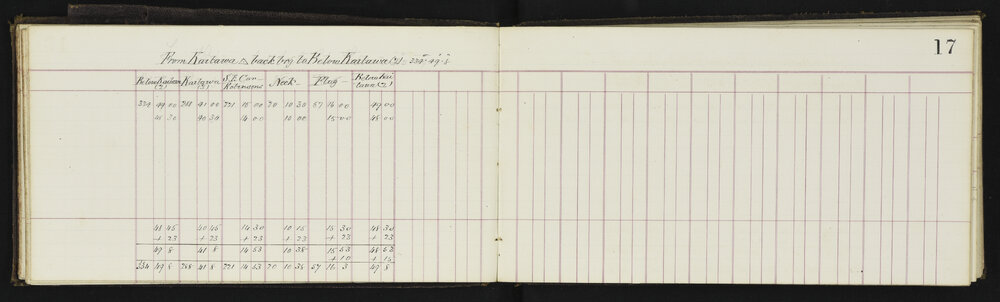 17
From Kaitawa △ back brg to Below Kaitawa (2) 334° 49' 8"
Below Kaitawa (2) Kaitawa (2) S.E. Cor. Robinsons Neck Flag Below Kaitawa (2)
334 49 00 268 41 00 221 15 00 70 10 30 57 16 00 49 00
48 30 40 30 14 00 10 00 15 00 48 00
48 45 40 45 14 30 10 15 15 30 48 30
+ 23 + 23 + 23 + 23 + 23 + 23
49 8 41 8 14 53 10 38 15 53 48 53
+ 10 + 15
334 49 8 268 41 8 221 14 53 70 10 38 57 16 3 49 8